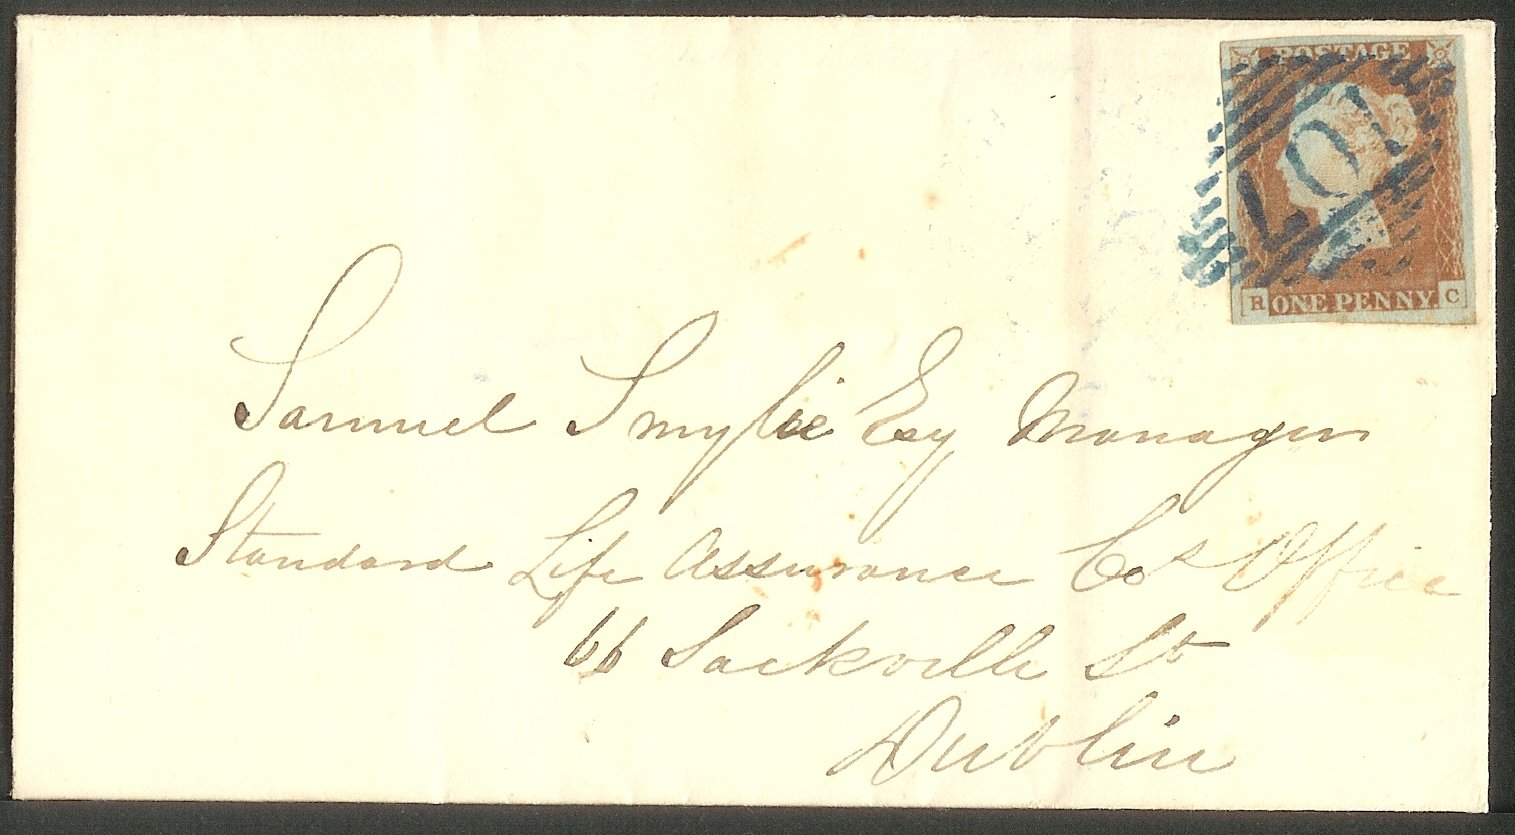 POSTAGE
R ONE PENNY. C
Samuel Smylie Esq Manager
Standard Life Assurance Cos Office
66 Sackville St
Dublin